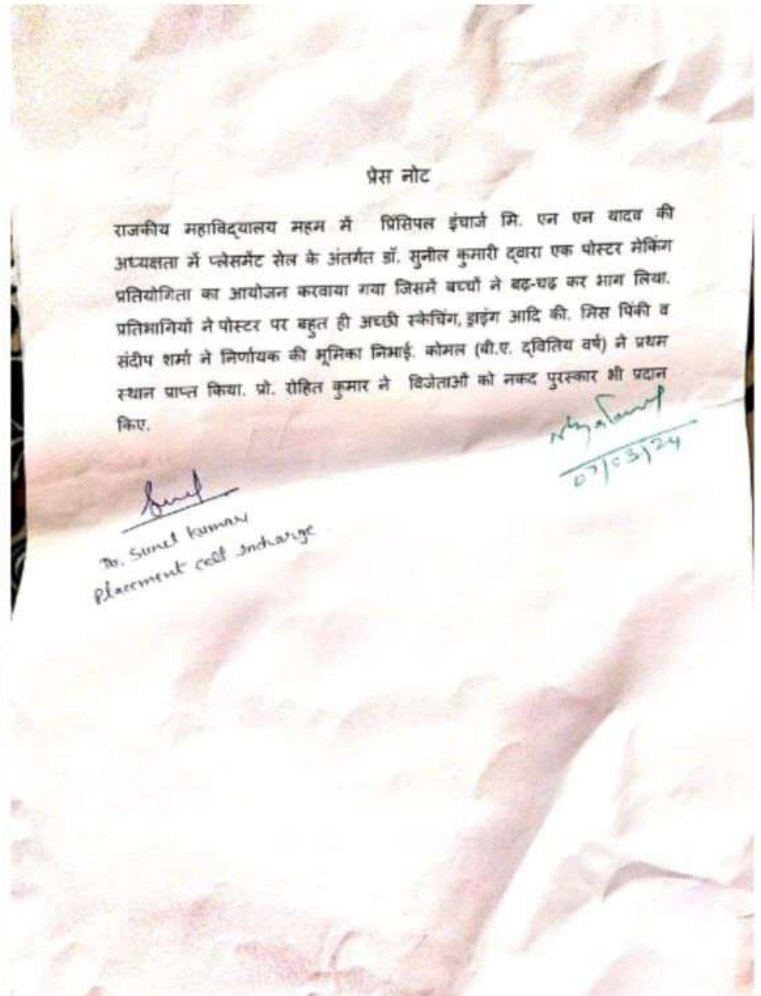 प्रेस नोट
राजकीय महाविद्यालय महम में प्रिंसिपल इंचार्ज मि. एन एन यादव की
अध्यक्षता में प्लेसमेंट सेल के अंतर्गत डॉ. सुनील कुमारी द्वारा एक पोस्टर मेकिंग
प्रतियोगिता का आयोजन करवाया गया जिसमें बच्चों ने बढ़-चढ़ कर भाग लिया.
प्रतिभागियों ने पोस्टर पर बहुत ही अच्छी स्केचिंग, ड्राइंग आदि की. मिस पिंकी व
संदीप शर्मा ने निर्णायक की भूमिका निभाई. कोमल (बी.ए. द्वितिय वर्ष) ने प्रथम
स्थान प्राप्त किया. प्रो. रोहित कुमार ने विजेताओं को नकद पुरस्कार भी प्रदान
किए.
07/03/24
Dr. Sunel Kumar
Placement cell Incharge